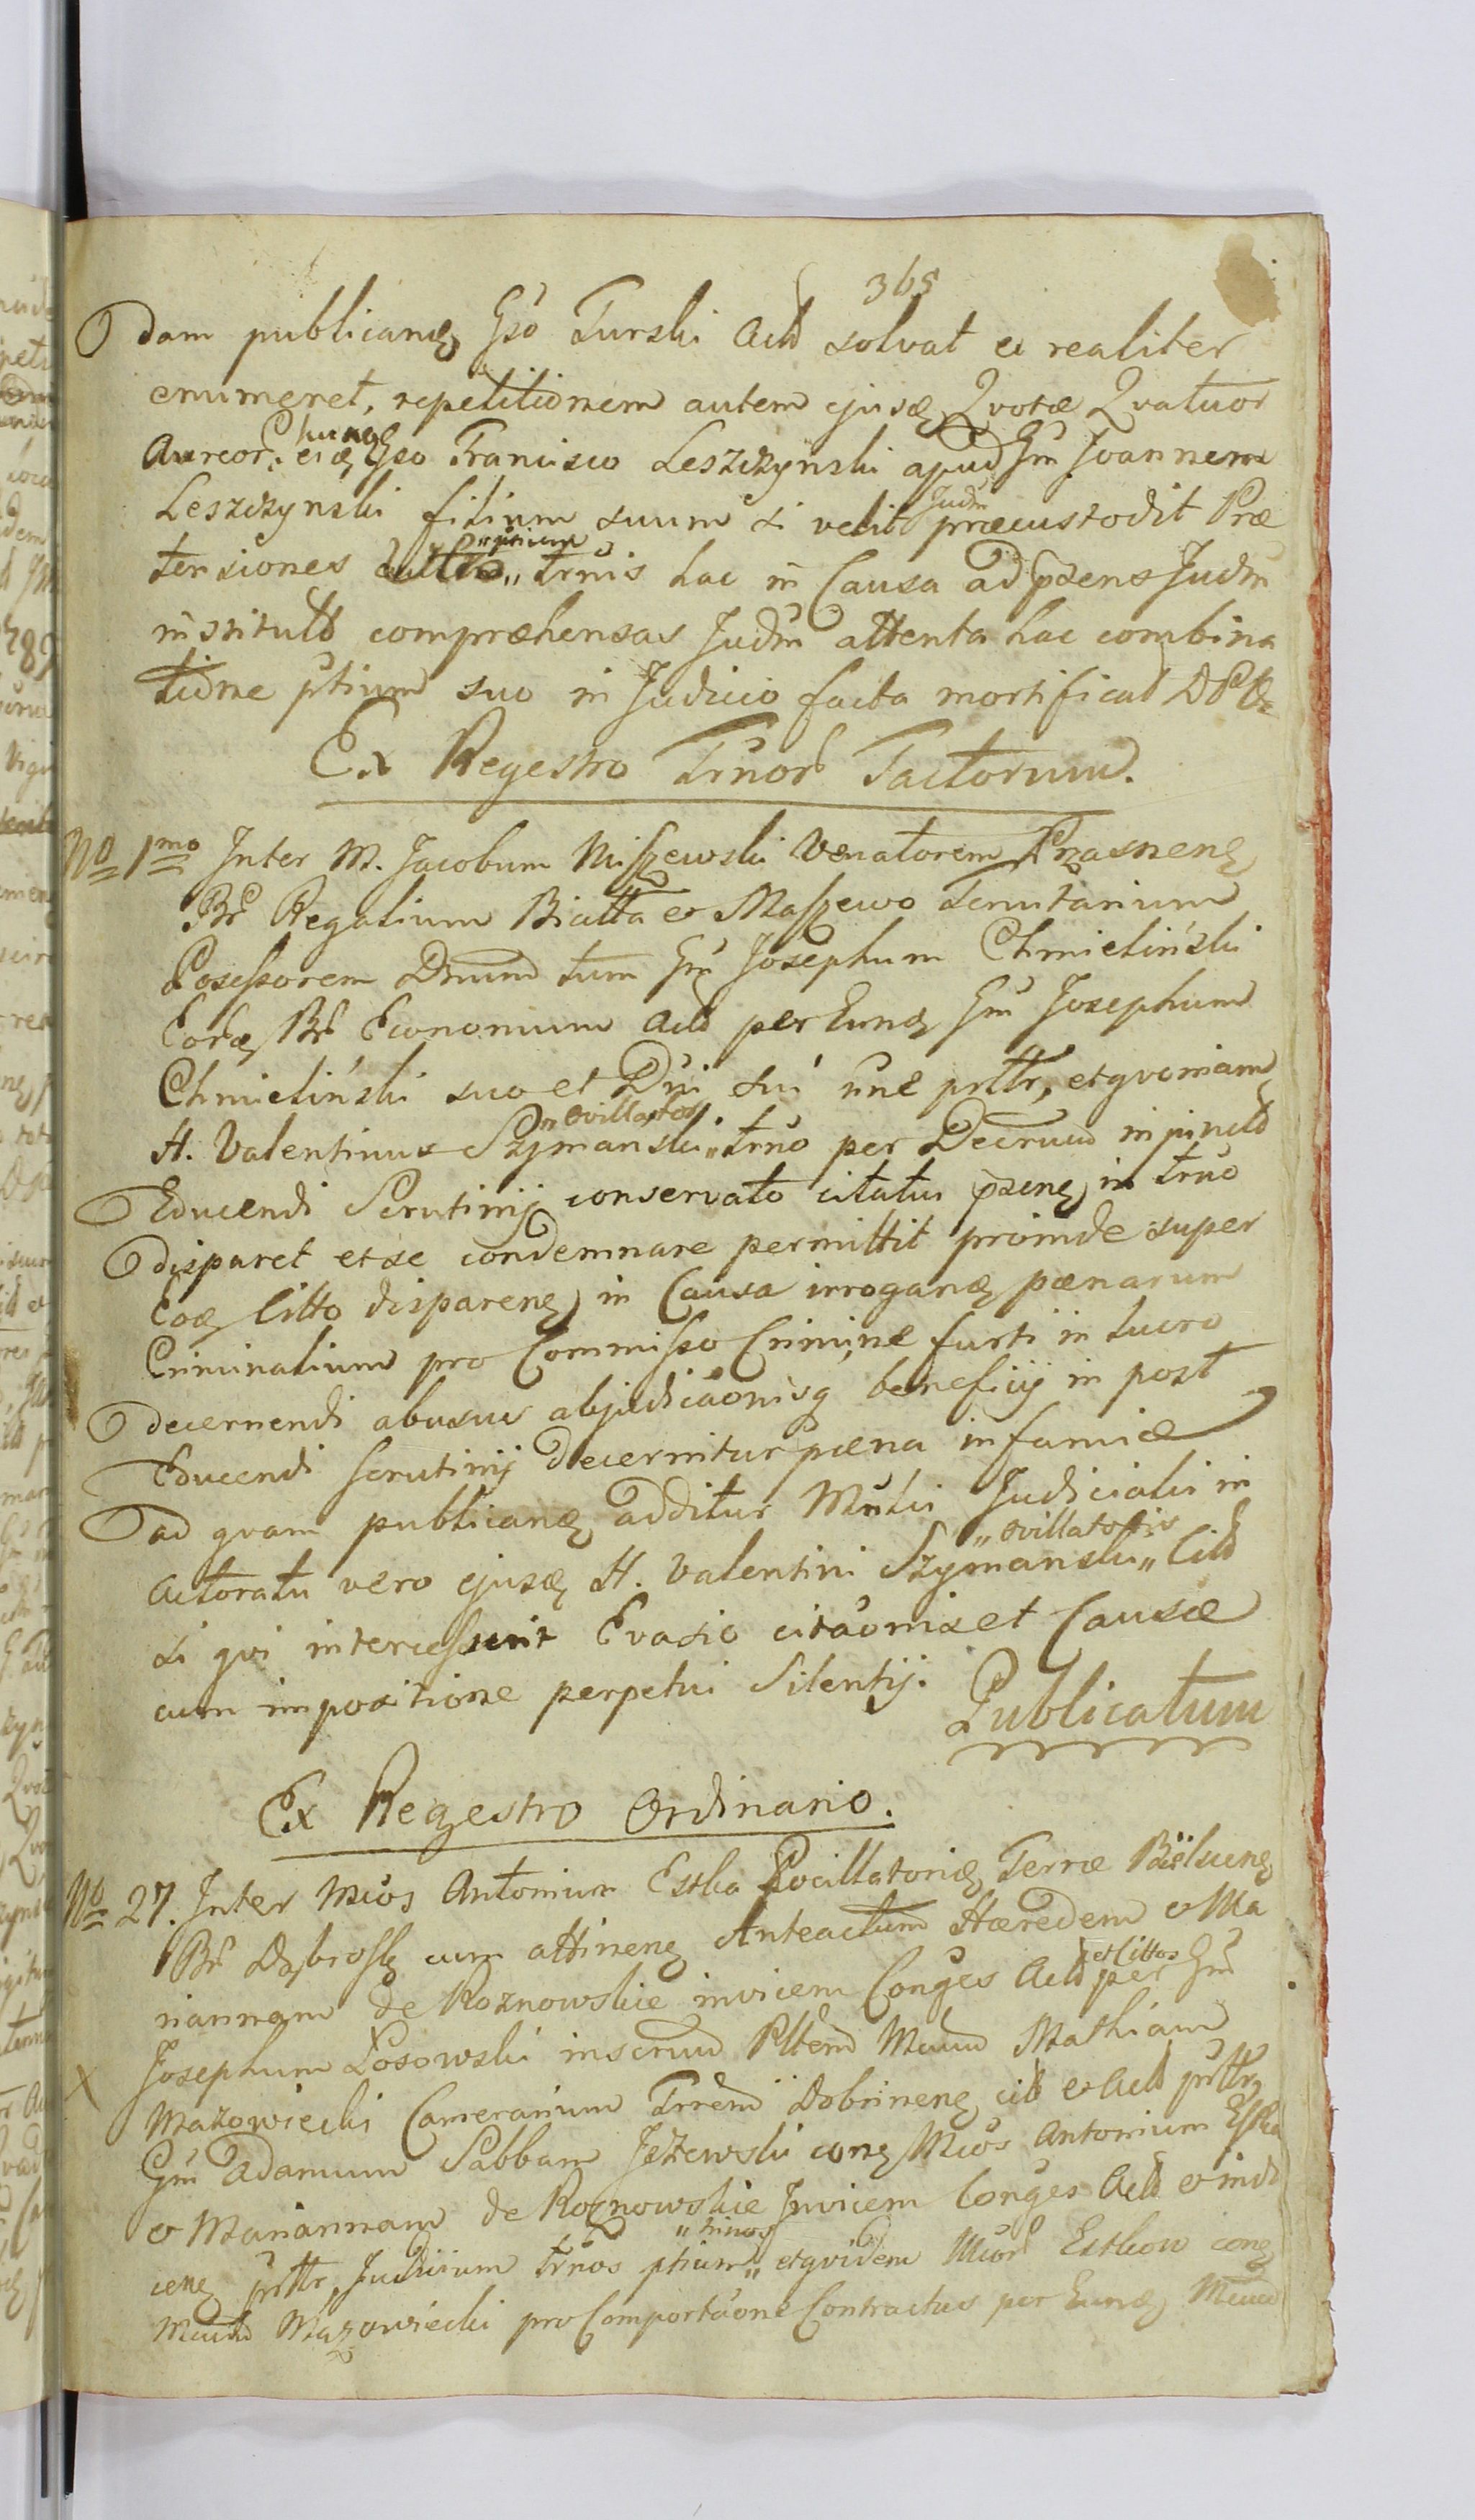 365
dam publicand Gso Turski Actd solvat et realiter
enumeret, repetitionem autem ejusd Qvotæ Qvatuor
Aureor: hung
eid Gso Francisco Leszczynski apud Gm Joannem
Leszczynski filium suum si velit Judm præcustodit Præ
tensiones ptium trnis hac in Causa ad præns Judm
institutd compræhensas Judm attenta hac combina
tione ptium suo in Judicio facta mortificat DPD
Ex Regestro Trnor Factorum.
No 1mo Inter M. Jacobum Miszewski Venatorem Przasnen
Br Regalium Białłta et Maszewo Tenutarium
Possessorem Dnum tum Gm Josephum Chmielinski
Eord Br Economum Actd per Eund Gm Josephum
Chmielinski suo et Dni sui nne prttr, et qvoniam
H. Valentinus Szymanski ovillator trno per Decrum in pinctd
Educendi Scrutinij conservato citatus præns in trno
disparet et se condemnare permittit proinde super
Eod Citto disparen in Causa irrogand pœnarum
Criminalium pro Commisso Crimine furti in lucro
decernendi abusus abjudicaonisq beneficij in post
Educendi scrutinij decernitur pœna infamiæ
ad qvam publicand additur Mnstri Judicialis in
Actoratu vero ejusd H. Valentini Szymanski ovillatoris Citd
si qvi intercesserit Evasio citaonis et Causæ
cum impositione perpetui Silentij.
Publicatum
Ex Regestro Ordinario.
No 27. Inter Mcos Antonium Estka Pocillatorid Terræ Bielscen
Br Dąbrossę cum attinen Anteactum Hæredem et Ma
riannam de Roznowskie invicem Conges Actd et Cittos per Gm
Josephum Łosowski inscrum Pltem Mcum Mathiam
X
Mazowiecki Camerarium Trrem Dobrinen citd et Actd prttr,
Gm Adamum Sabbam Jeżewski con Mcos Antonium Estka
et Mariannam de Roznowskie Invicem Conges Actd et indu
cen prttr, Judicium trnos ptium hinos et qvidem Mcor Estkow con
Mcum Mazowiecki pro Comportaone Contractus per Eund Mcum